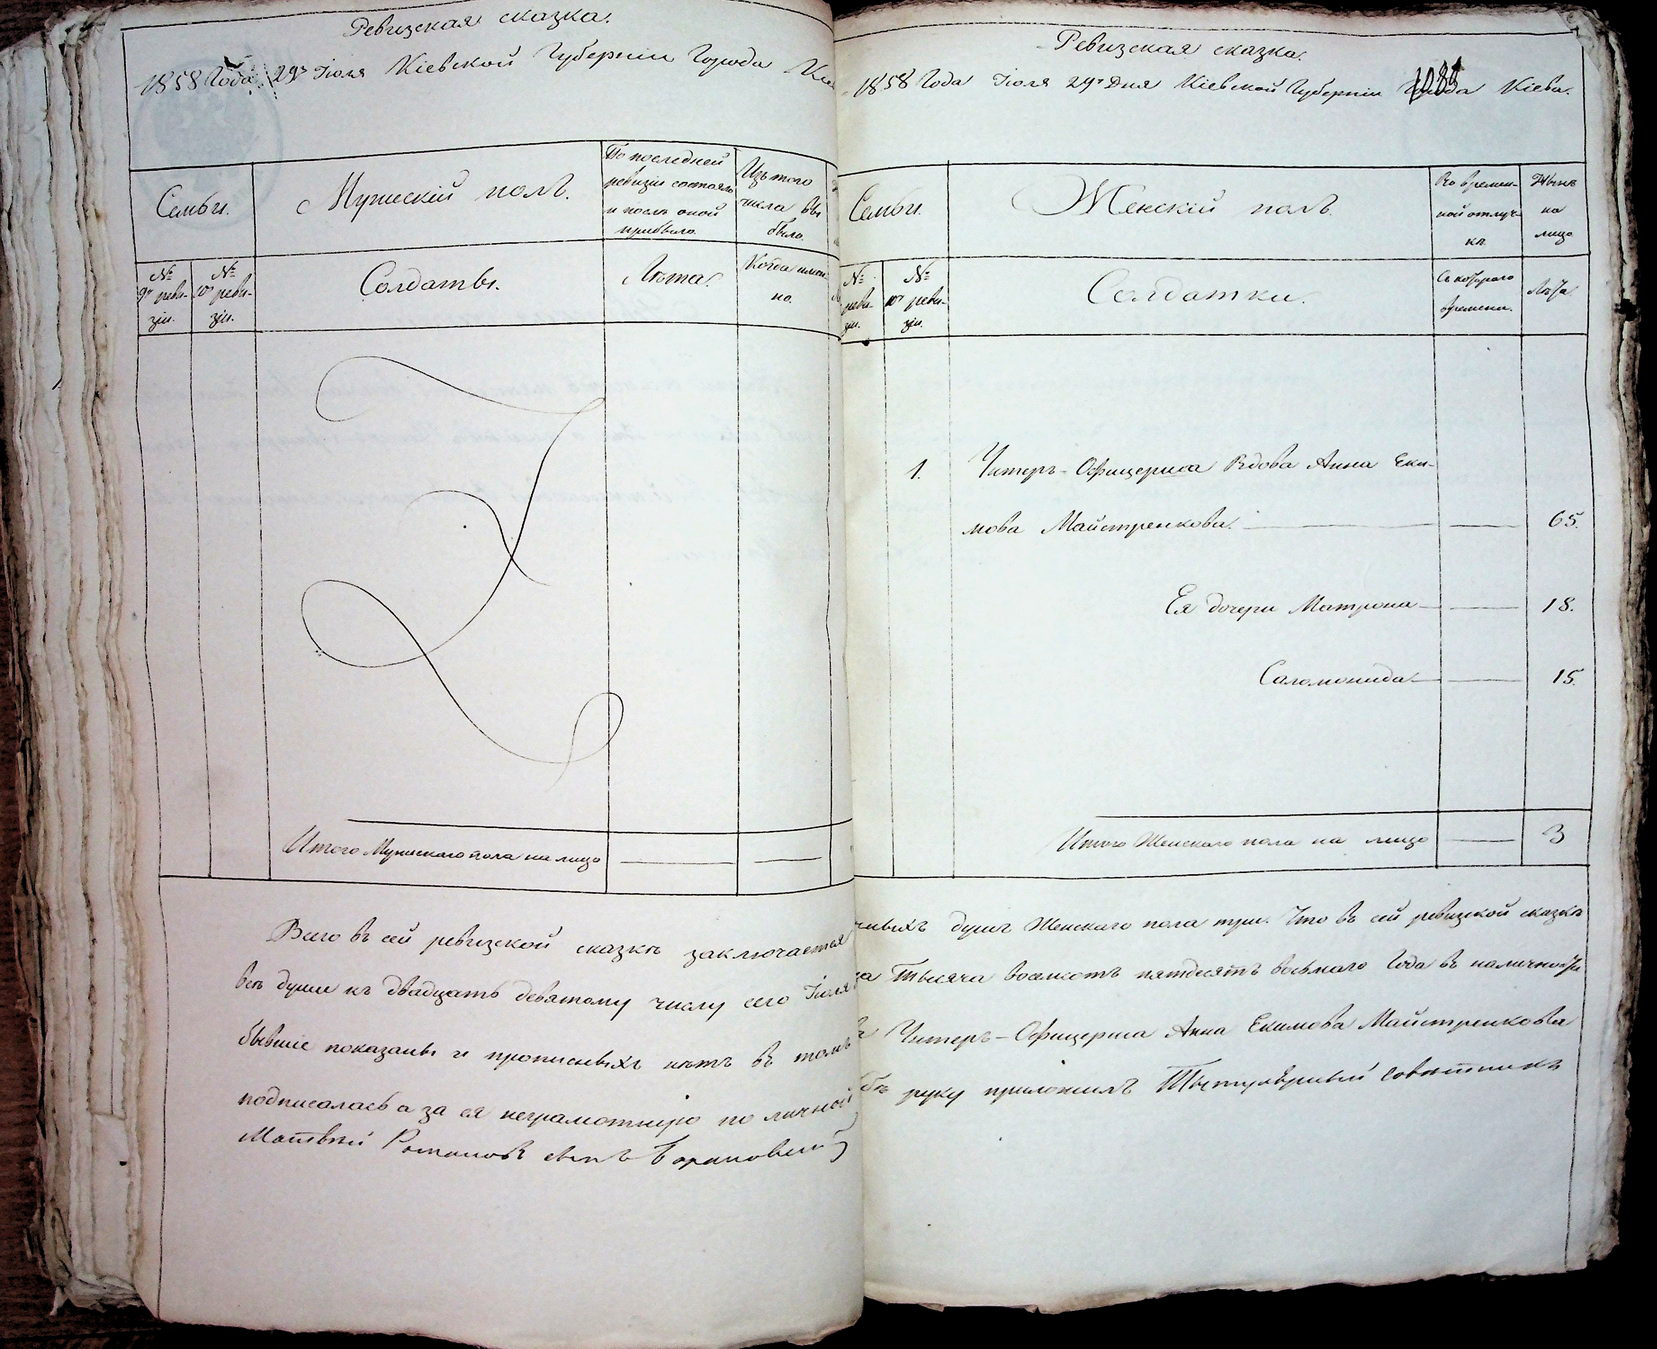 Ревизская сказка.
1858 Года 29го Іюля Кіевской Губерніи Города
Семьи.
Мужескій полъ.
По последней
ревизіи состояло
и послѣ оной
прибыло.
Изъ того
числа вы
было.
№
9й реви-
зіи.
№
10й реви-
зіи.
Солдаты.
Лѣта.
Когда имен-
но.
Итого Мужескаго пола на лицо
Всего въ сей ревизской сказкѣ заключается
всѣ души къ двадцать девятому числу сего Іюля
бывшіе показаны и прописныхъ нѣтъ въ томъ
подписалась а за ея неграмотную по личной
Матвѣй сынъ
Ревизская сказка.
1858 Года Іюля 29го Дня Кіевской Губерніи Города Кіева.
Семьи.
Женскій полъ.
Во времен-
ной отлуч-
кѣ
Нынѣ
на
лицо
№
реви-
зіи.
№
10й реви-
зіи.
Солдатки.
Съ котораго
времени.
Лѣта
1. Унтеръ-Офицерша Вдова Анна Еки-
мова Майстренкова. 65.
Ея дочери Матрона 18.
Саломонида 15.
Итого Женскаго пола на лицо 3
душъ Женскаго пола три. Что въ сей ревизской сказкѣ
Тысяча восемсотъ пятдесятъ восьмаго Года въ наличности
Унтеръ-Офицерша Анна Екимова Майстренкова
руку приложилъ Титулярный Совѣтникъ